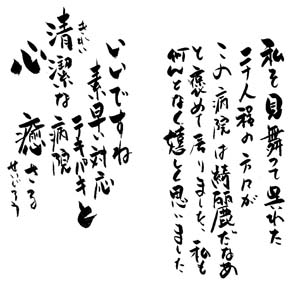 私を見舞って呉れた
二十人程の方々が
この病院は綺麗だなあ
と褒めて居りました、私も
何んとなく嬉しと思いました
いいですね
素早い対応
テキパキと
清潔な病院
きれい
心癒さる
せいどう